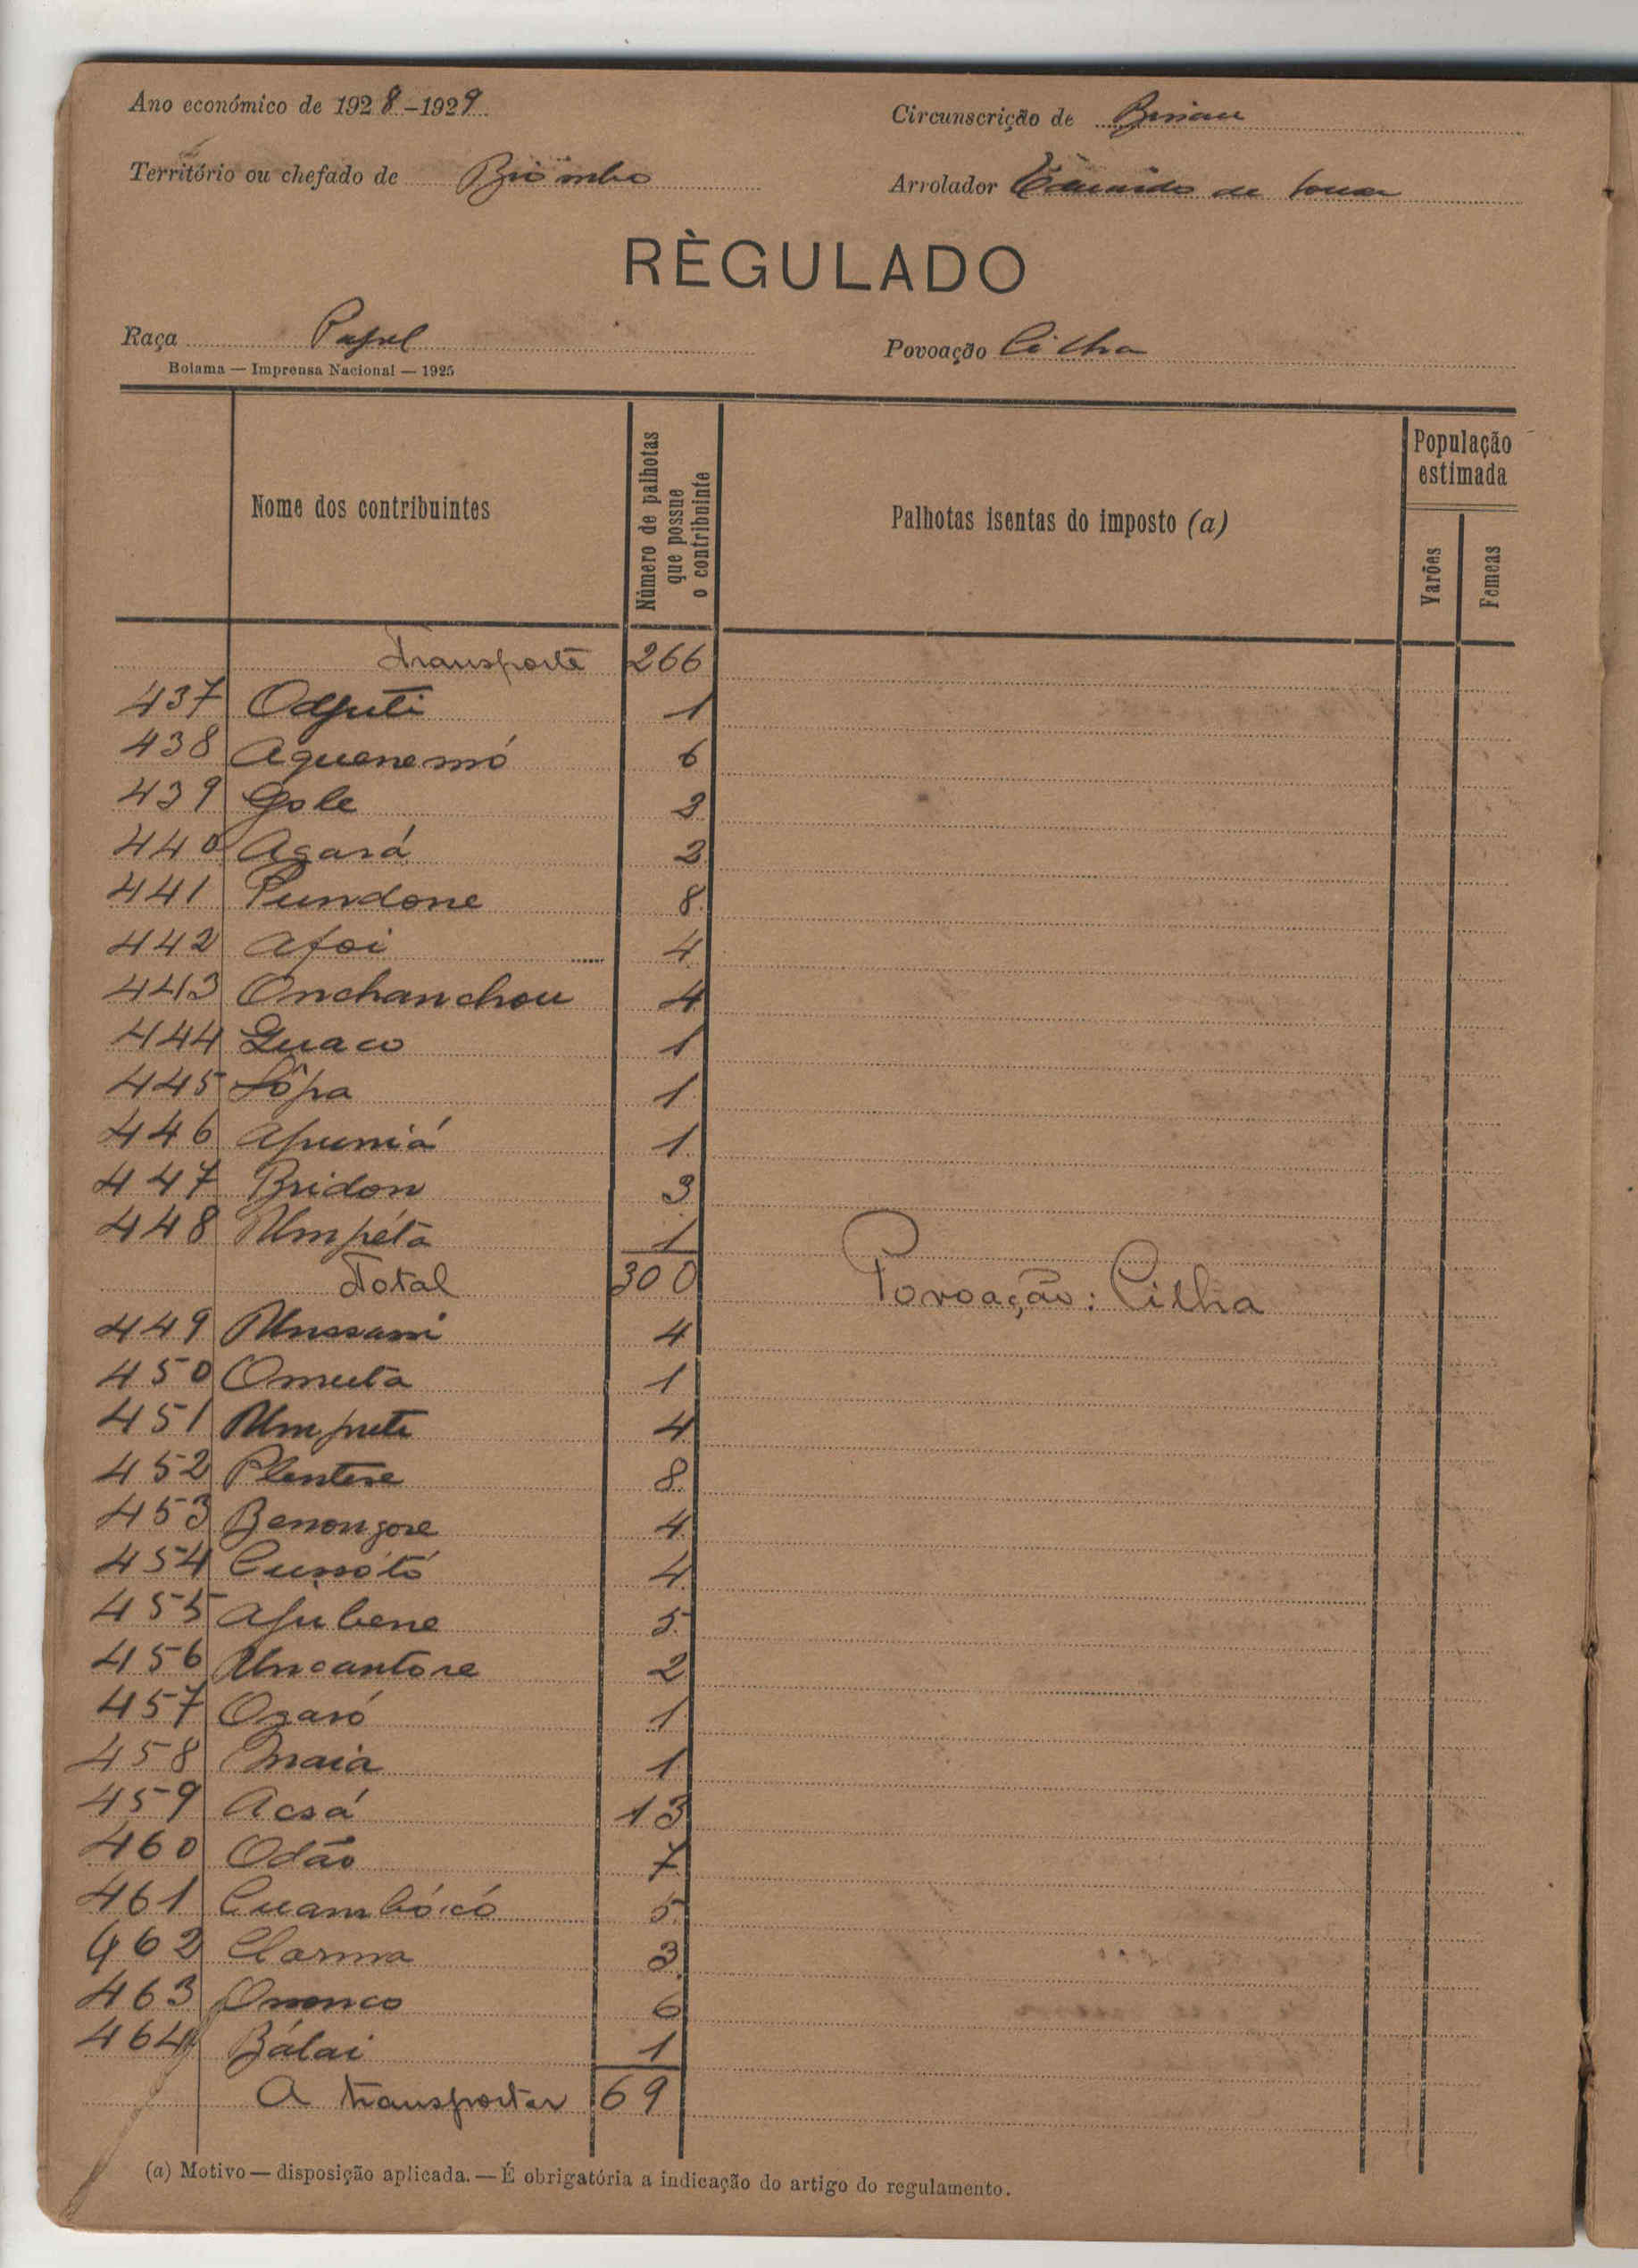 Ano económico de 1928-1929
Circunscrição de Bissau
Território ou chefado de Biombo
Arrolador Eduardo de Sousa
RÈGULADO
Raça Papel
Povoação Cilha
Bolama — Imprensa Nacional — 1925
Nome dos contribuintes
Número de palhotas que possue o contribuinte
Palhotas isentas do imposto (a)
População estimada
Varões
Femeas
Transporte 266
437 Odjuti 1
438 Aquenemó 6
439 Gole 2
440 Agará 2
441 Pundone 8
442 Afoi 4
443 Onchanchou 4
444 Quaco 1
445 Sôpa 1
446 Apumiá 1
447 Bridon 3
448 Umpéta 1
Total 300
Povoação: Cilha
449 Unssami 4
450 Omuta 1
451 Umpute 4
452 Plentene 8
453 Benongore 4
454 Cussótó 4
455 Ajubene 5
456 Uncantore 2
457 Ozaró 1
458 Maia 1
459 Acsá 13
460 Odão 7
461 Cuambócó 5
462 Clarma 3
463 Ononco 6
464 Bálai 1
A transportar 69
(a) Motivo — disposição aplicada. — É obrigatória a indicação do artigo do regulamento.